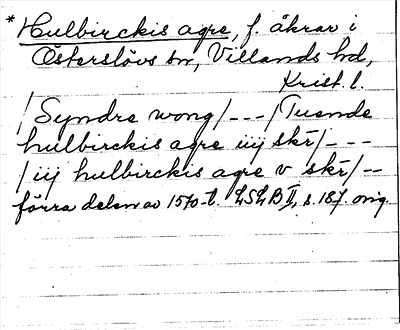 * Hulbirckis agre, f. åkrar i
Österslövs sn, Villands hd,
Krist. l.
/Syndre wong/ --- /Tuende
hulbirckis agre iiij skr̄/ ---
/iij hulbirckis agre v skr̄/ --
förra delen av 1570-t. LSLB II, s. 187. orig.